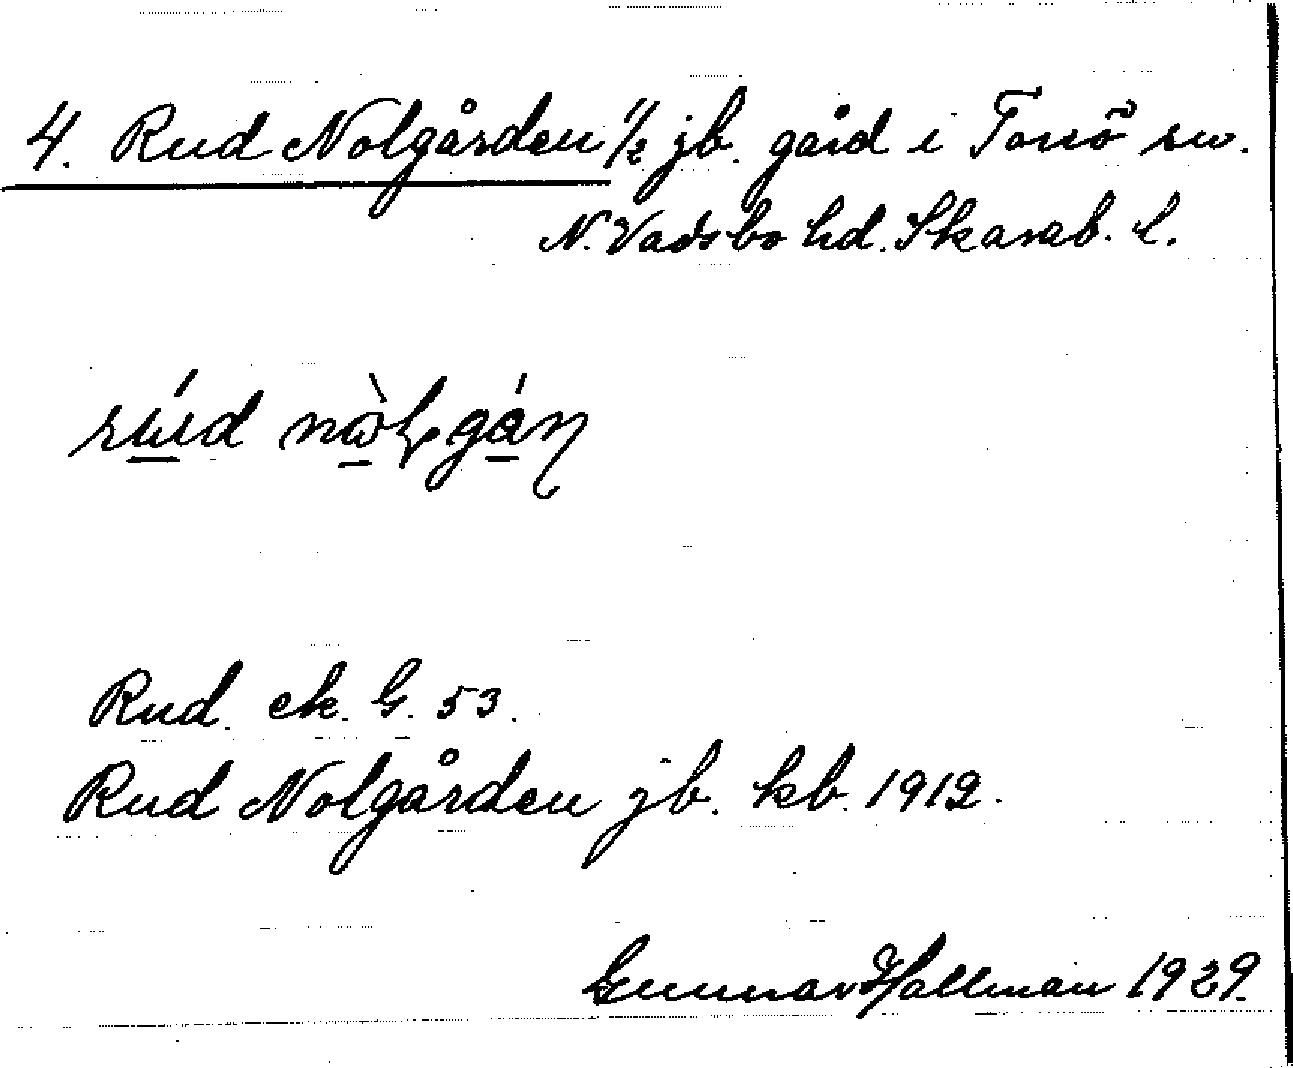 4. Rud Nolgården 1/2 jb. gård i Torsö sn.
N. Vadsbo hd. Skarab. l.
rúd nòlgán
Rud. ek. G. 53.
Rud Nolgården jb. kb. 1912.
Gunnar Hallman 1929.